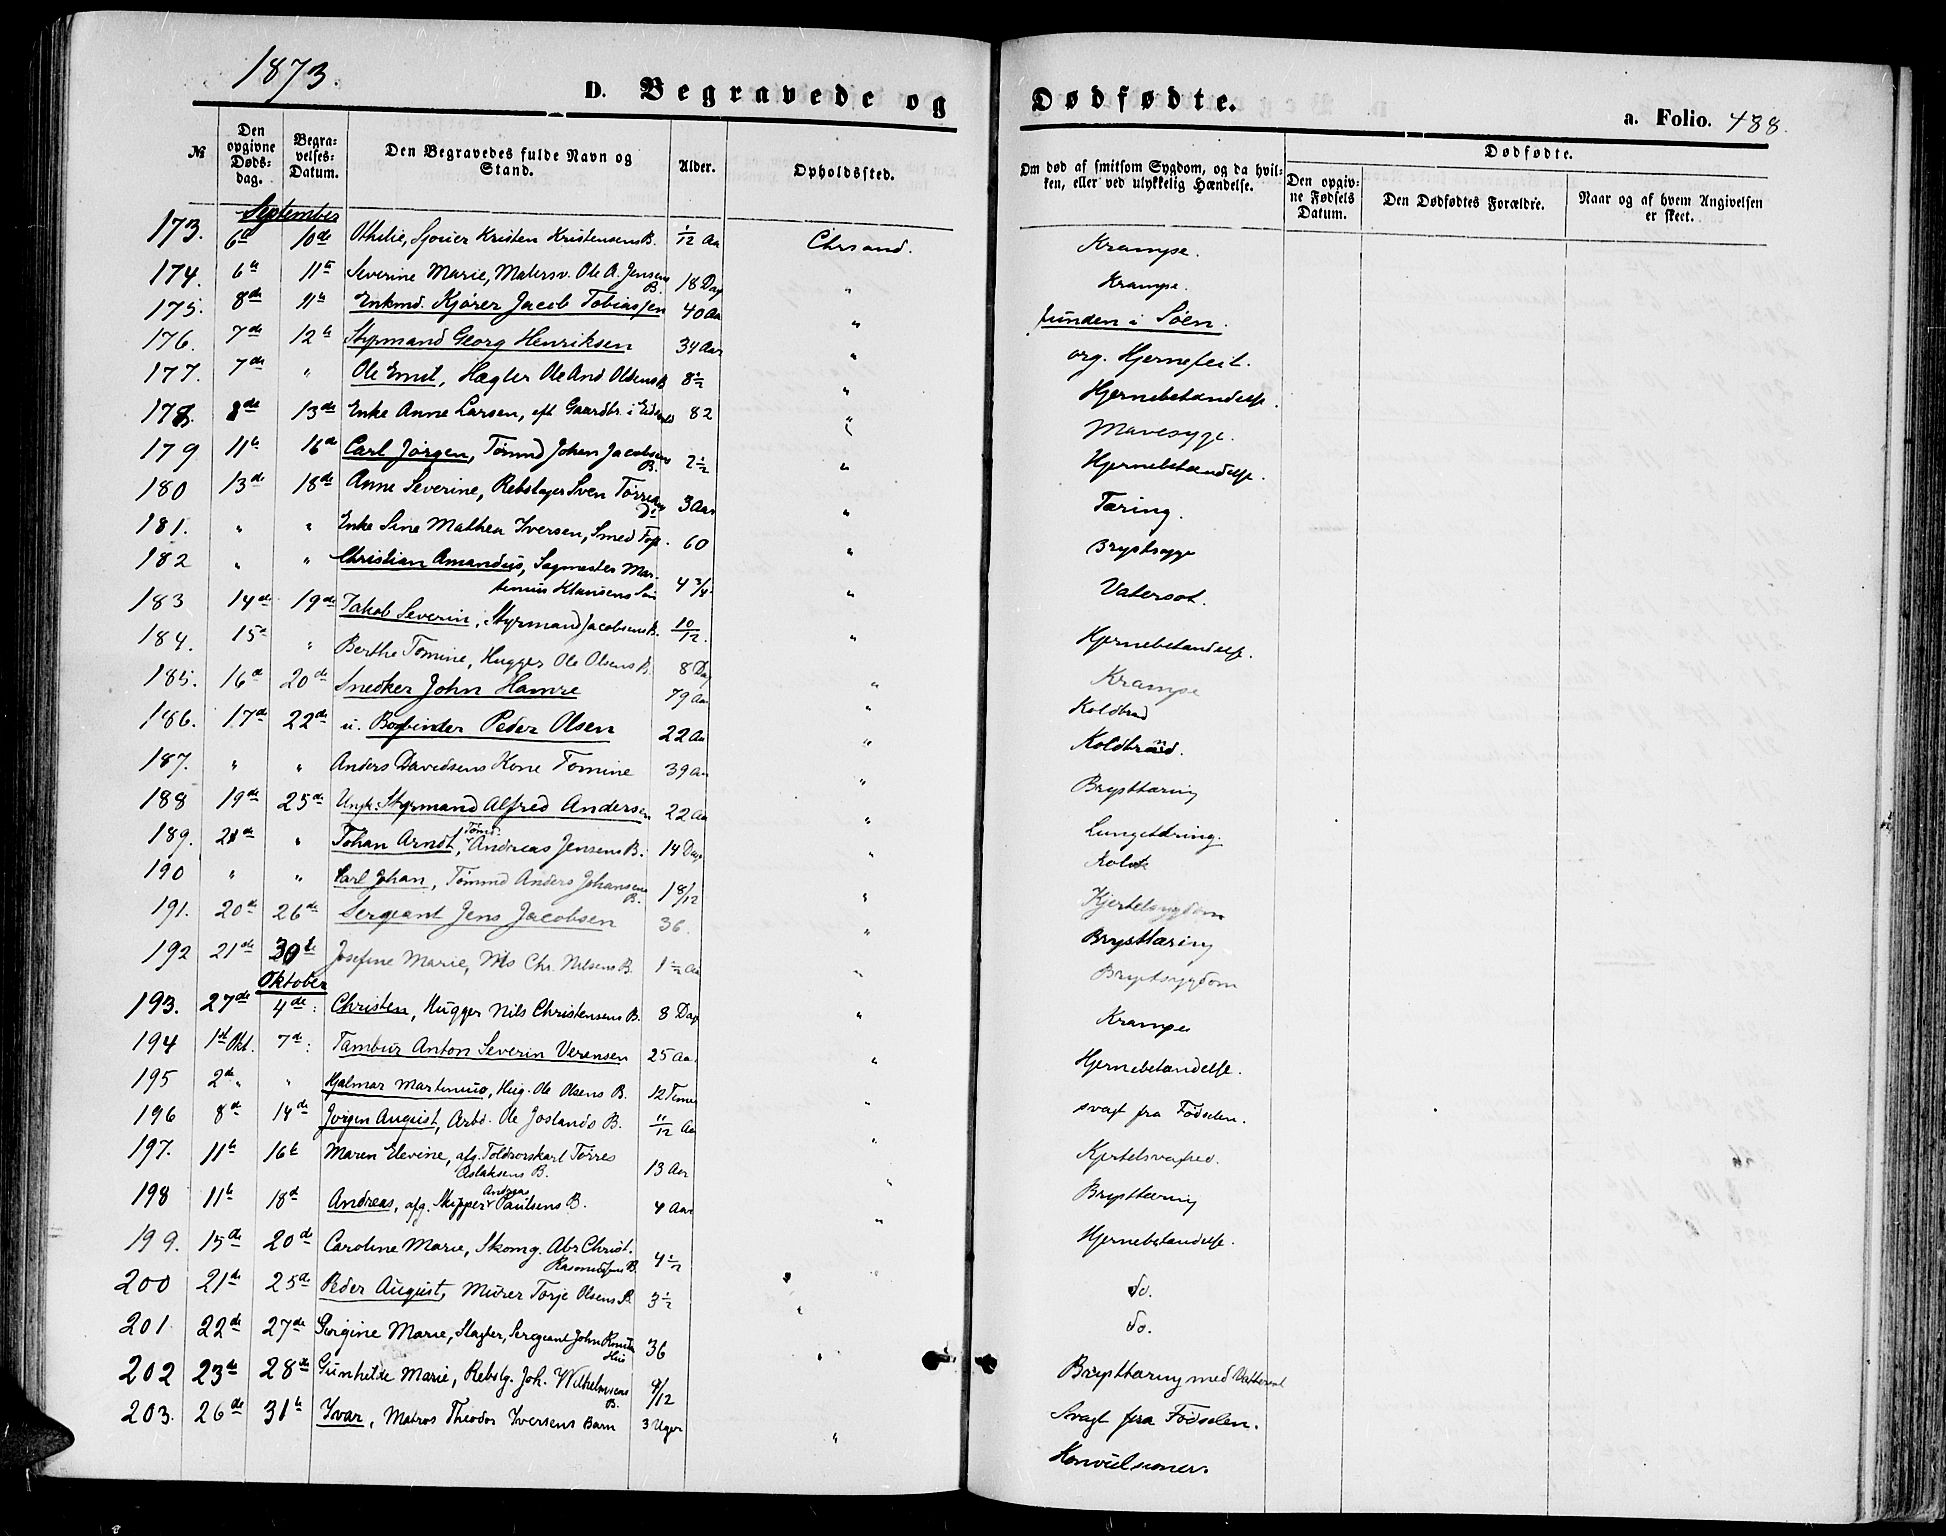 1873.
D. Begravede og
Dødfødte.
a. Folio. 488.
№
Den opgivne Døds-dag.
Begra-velses-Datum.
Den Begravedes fulde Navn og Stand.
Alder.
Opholdssted.
Om død af smitsom Sygdom, og da hvil-ken, eller ved ulykkelig Hændelse.
Dødfødte.
Den opgiv-ne Fødsels Datum.
Den Dødfødtes Forældre.
Naar og af hvem Angivelsen er skeet.
September
173. 6te 10de Othilie, Kristen Kristensens B. 1/12 Aar Chrsand. Krampe.
174. 6te 11te Severine Marie, Ole A. Jensens B. 18 Dag " Krampe.
175. 8de 11te Enkmd. Kjører Jacob Tobiassen 40 Aar " funden i Søen.
176. 7de 12te Styrmand Georg Henriksen 34 Aar " org. Hjernefeil.
177. 7de " Ole Emil, Hægler Ole And Olsens B. 8 1/2 " Hjernebetændelse.
178. 8de 13de Enke Anne Larsen, eft Gaardbr. i 82 " Mavesyge.
179 11te 16de Carl Jørgen, Tømmd Johan Jacobsens B. 2 1/2 " Hjernebetændelse.
180 13de 18de Anne Severine, Rebslager Sven 3 Aar " Tæring.
181. " " Enke Sine Mathea Iversen, Smed 60 " Brystsyge
182 " " Christian Amandus, Sagmester Mar-tinius Klausens Søn 4 3/4 " Vatersot.
183 14de 19de Jakob Severin, Styrmand Jacobsens B. 10/12. " Hjernebetændelse.
184. 15de " Berthe Tomine, Hugger Ole Olsens B. 8 Dag " Krampe
185. 16de 20de Snedker John Hamre 79 Aar " Koldbrand
186. 17de 22de u. Bogbinder Peder Olsen 22 Aar " Koldbrand.
187. " " Anders Davidsens Kone Tomine 39 Aar " Brysttæring
188 19de 25de Ungk. Styrmand Alfred Andersen 22 Aar " Lungetæring.
189. 21de " Johan Arndt, Tømd. Andreas Jensens B. 14 Dage "
190 " " Carl Johan, Tømmd Anders Johansens B. 1 8/12 " Kjertelsygdom
191. 20de 26de Sergeant Jens Jacobsen 36. " Brysttæring
192 21de 30te Josefine Marie, Chr. Nilsens B. 1 1/2 Aar " Brystsygdom
Oktober
193. 27de 4de: Christen, Hugger Nils Christensens B. 8 Dage " Krampe
194 1st Okt. 7de: Tambur Anton Severin Verensen 25 Aar. " Hjernebetændelse.
195 2de " " Hjalmar Martinius, Hug. Ole Olsens B. 12 Timer " svagt fra Fødselen.
196 8de 14de Jørgen August, Arbd. Ole Joslands B. 11/12 Aar " Kjertelsvaghed.
197. 11te 16te Maren Elevine, afg. Toldrorskarl Tørres Aslaksens B. 13 Aar " Brysttæring
198 11te 18de Andreas, afg. Skipper Andreas Paulsens B. 4 Aar " Hjernebetændelse.
199. 15de 20de Caroline Marie, Skomg. Abr Christ. B. 4 1/2 " do.
200 21de 25de Peder August, Murer Torje Olsens B. 3 1/2 " do.
201 22de 27de Georgine Marie, Sergeant John 36 " Brysttæring med Vattersot
202 23de 28de Gunhilde Marie, Rebslg. Joh. Wilhelmsens B. 9/12 Svagt fra Fødselen.
203. 26de 31te Ivar, Matros Theodor Iversens Barn 3 Uger " Konvulsioner.